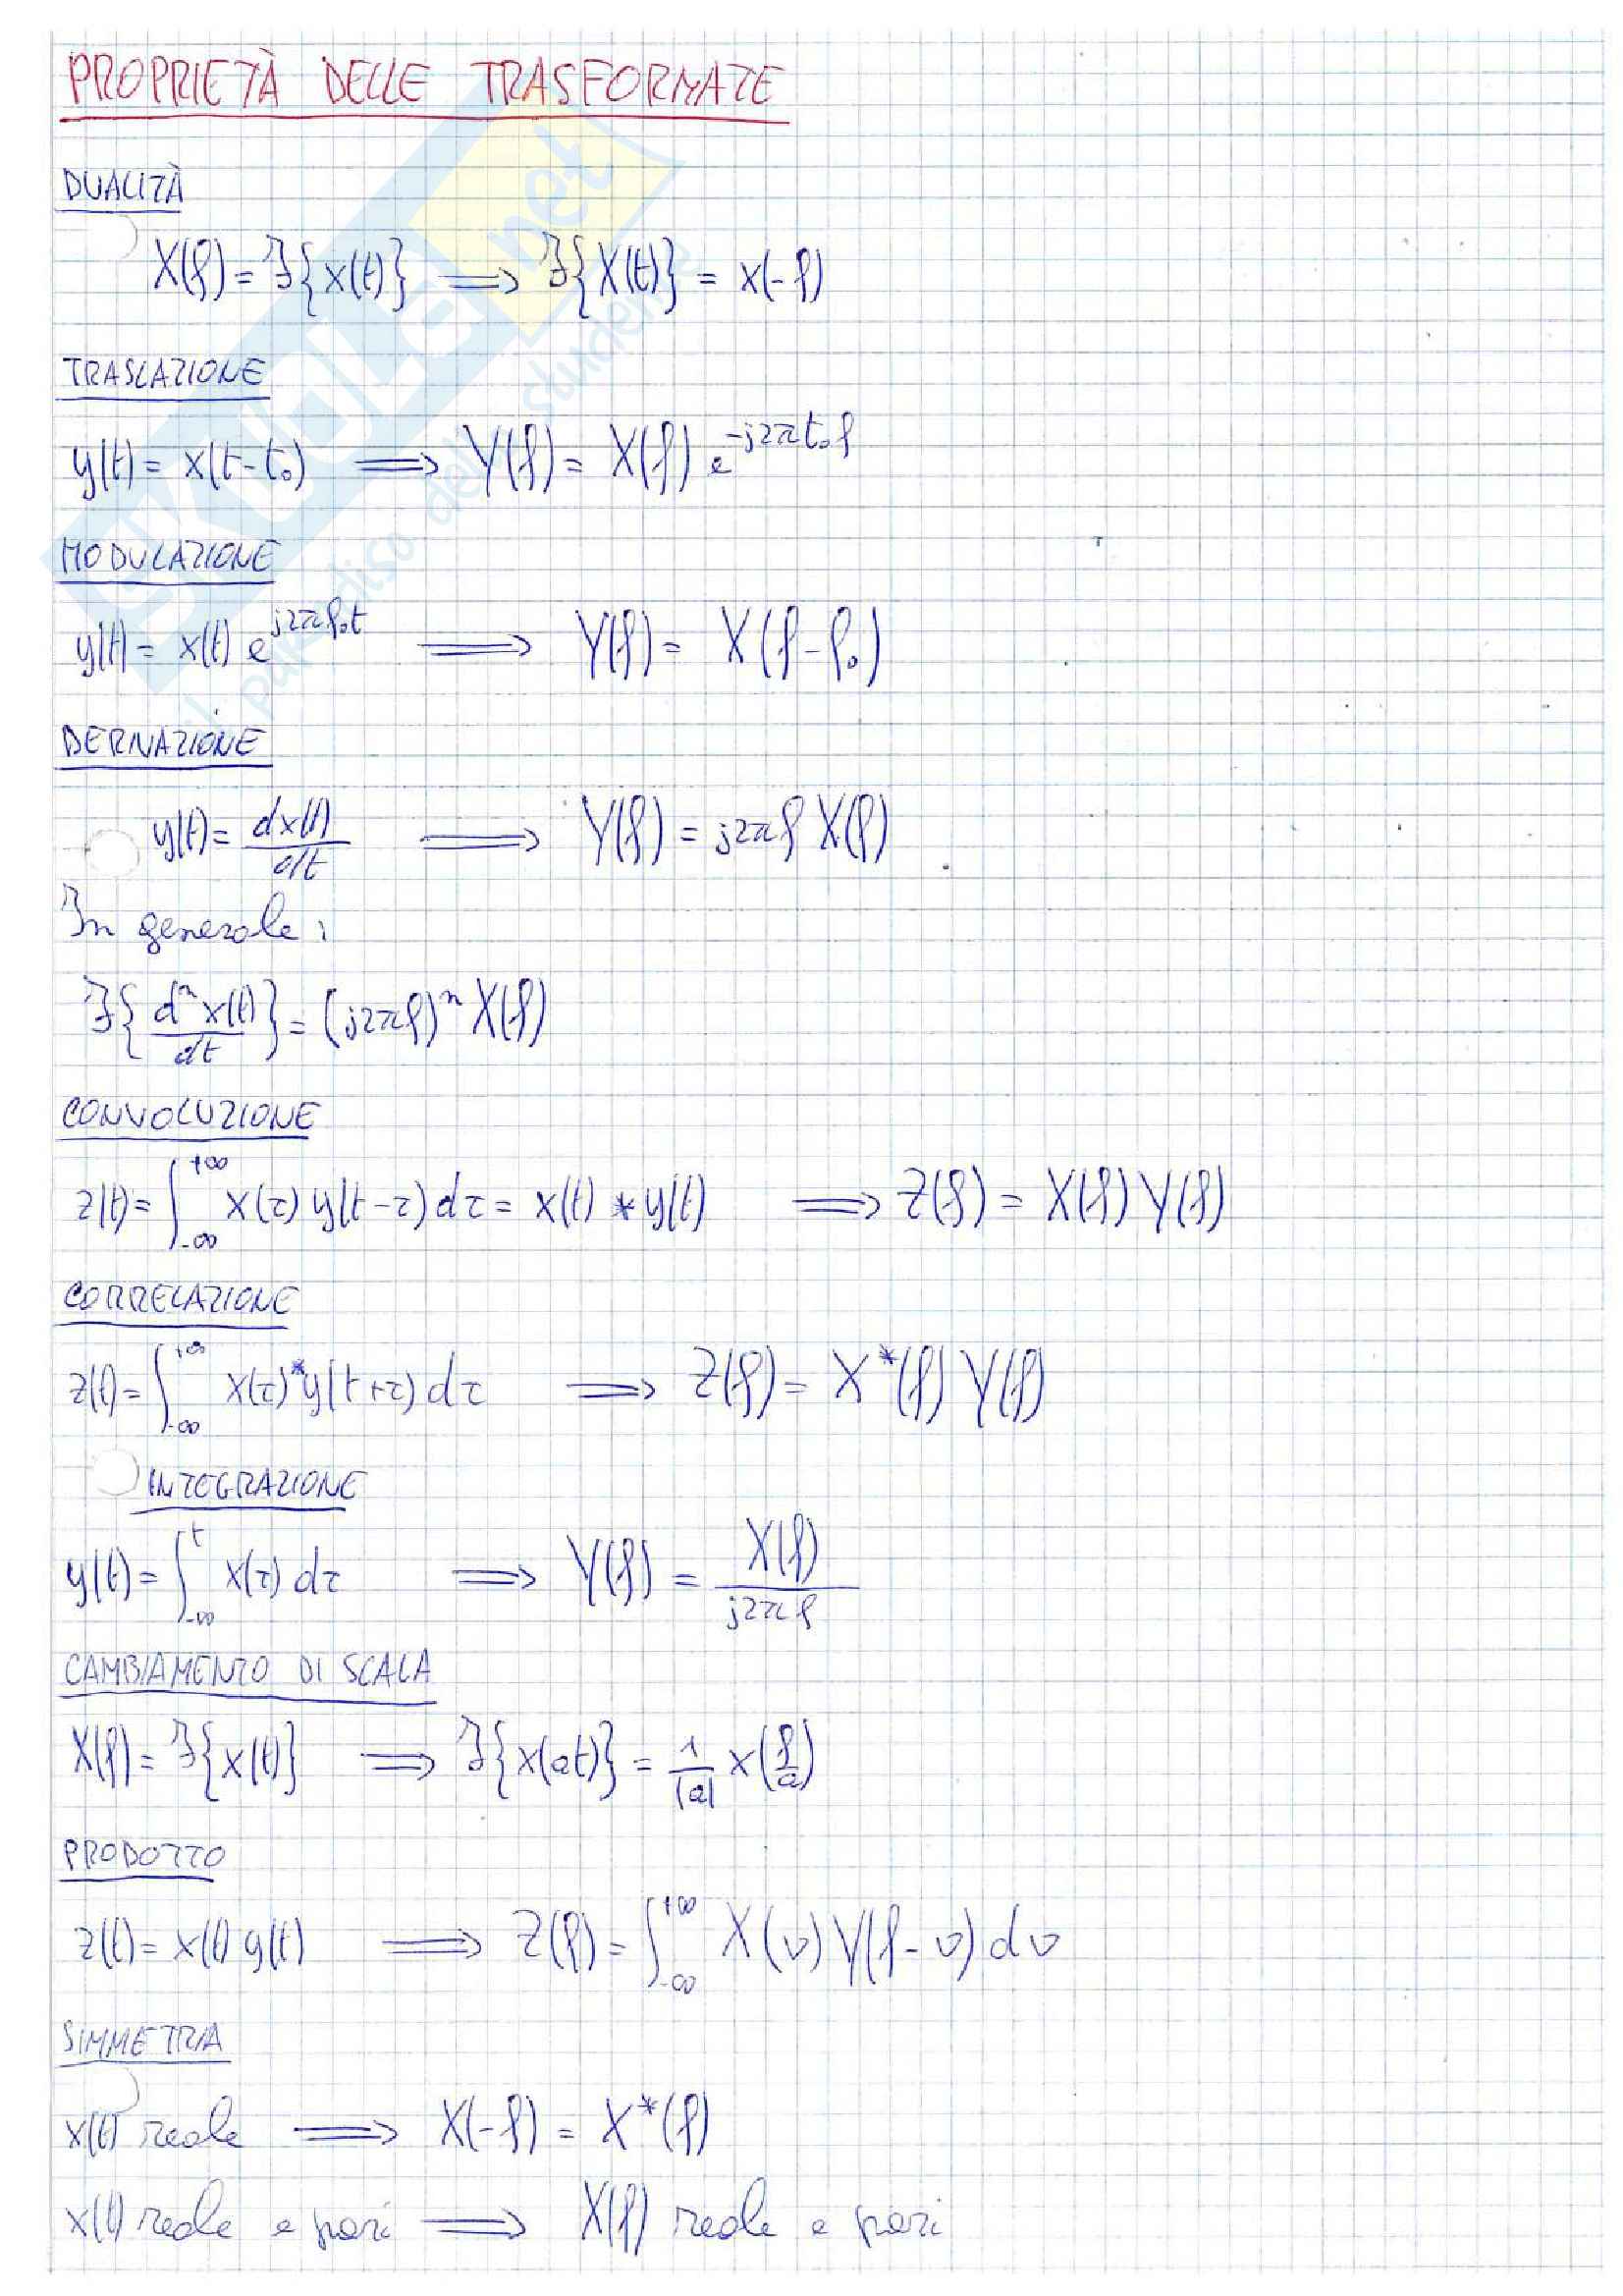 PROPRIETÀ DELLE TRASFORMATE
DUALITÀ
X(f) = ℱ{x(t)} ⟹ ℱ{X(t)} = x(-f)
TRASLAZIONE
y(t) = x(t-t₀) ⟹ Y(f) = X(f) e^{-j2πt₀f}
MODULAZIONE
y(t) = x(t) e^{j2πf₀t} ⟹ Y(f) = X(f-f₀)
DERIVAZIONE
y(t) = dx(t)/dt ⟹ Y(f) = j2πf X(f)
In generale:
ℱ{dⁿx(t)/dt} = (j2πf)ⁿ X(f)
CONVOLUZIONE
z(t) = ∫_{-∞}^{+∞} x(τ) y(t-τ) dτ = x(t) * y(t) ⟹ Z(f) = X(f) Y(f)
CORRELAZIONE
z(t) = ∫_{-∞}^{+∞} x(τ)* y(t+τ) dτ ⟹ Z(f) = X*(f) Y(f)
INTEGRAZIONE
y(t) = ∫_{-∞}^{t} x(τ) dτ ⟹ Y(f) = X(f)/j2πf
CAMBIAMENTO DI SCALA
X(f) = ℱ{x(t)} ⟹ ℱ{x(at)} = 1/|a| x(f/a)
PRODOTTO
z(t) = x(t) y(t) ⟹ Z(f) = ∫_{-∞}^{+∞} X(ν) Y(f-ν) dν
SIMMETRIA
x(t) reale ⟹ X(-f) = X*(f)
x(t) reale e pari ⟹ X(f) reale e pari
SKUOLA.net
il paradiso dello studente